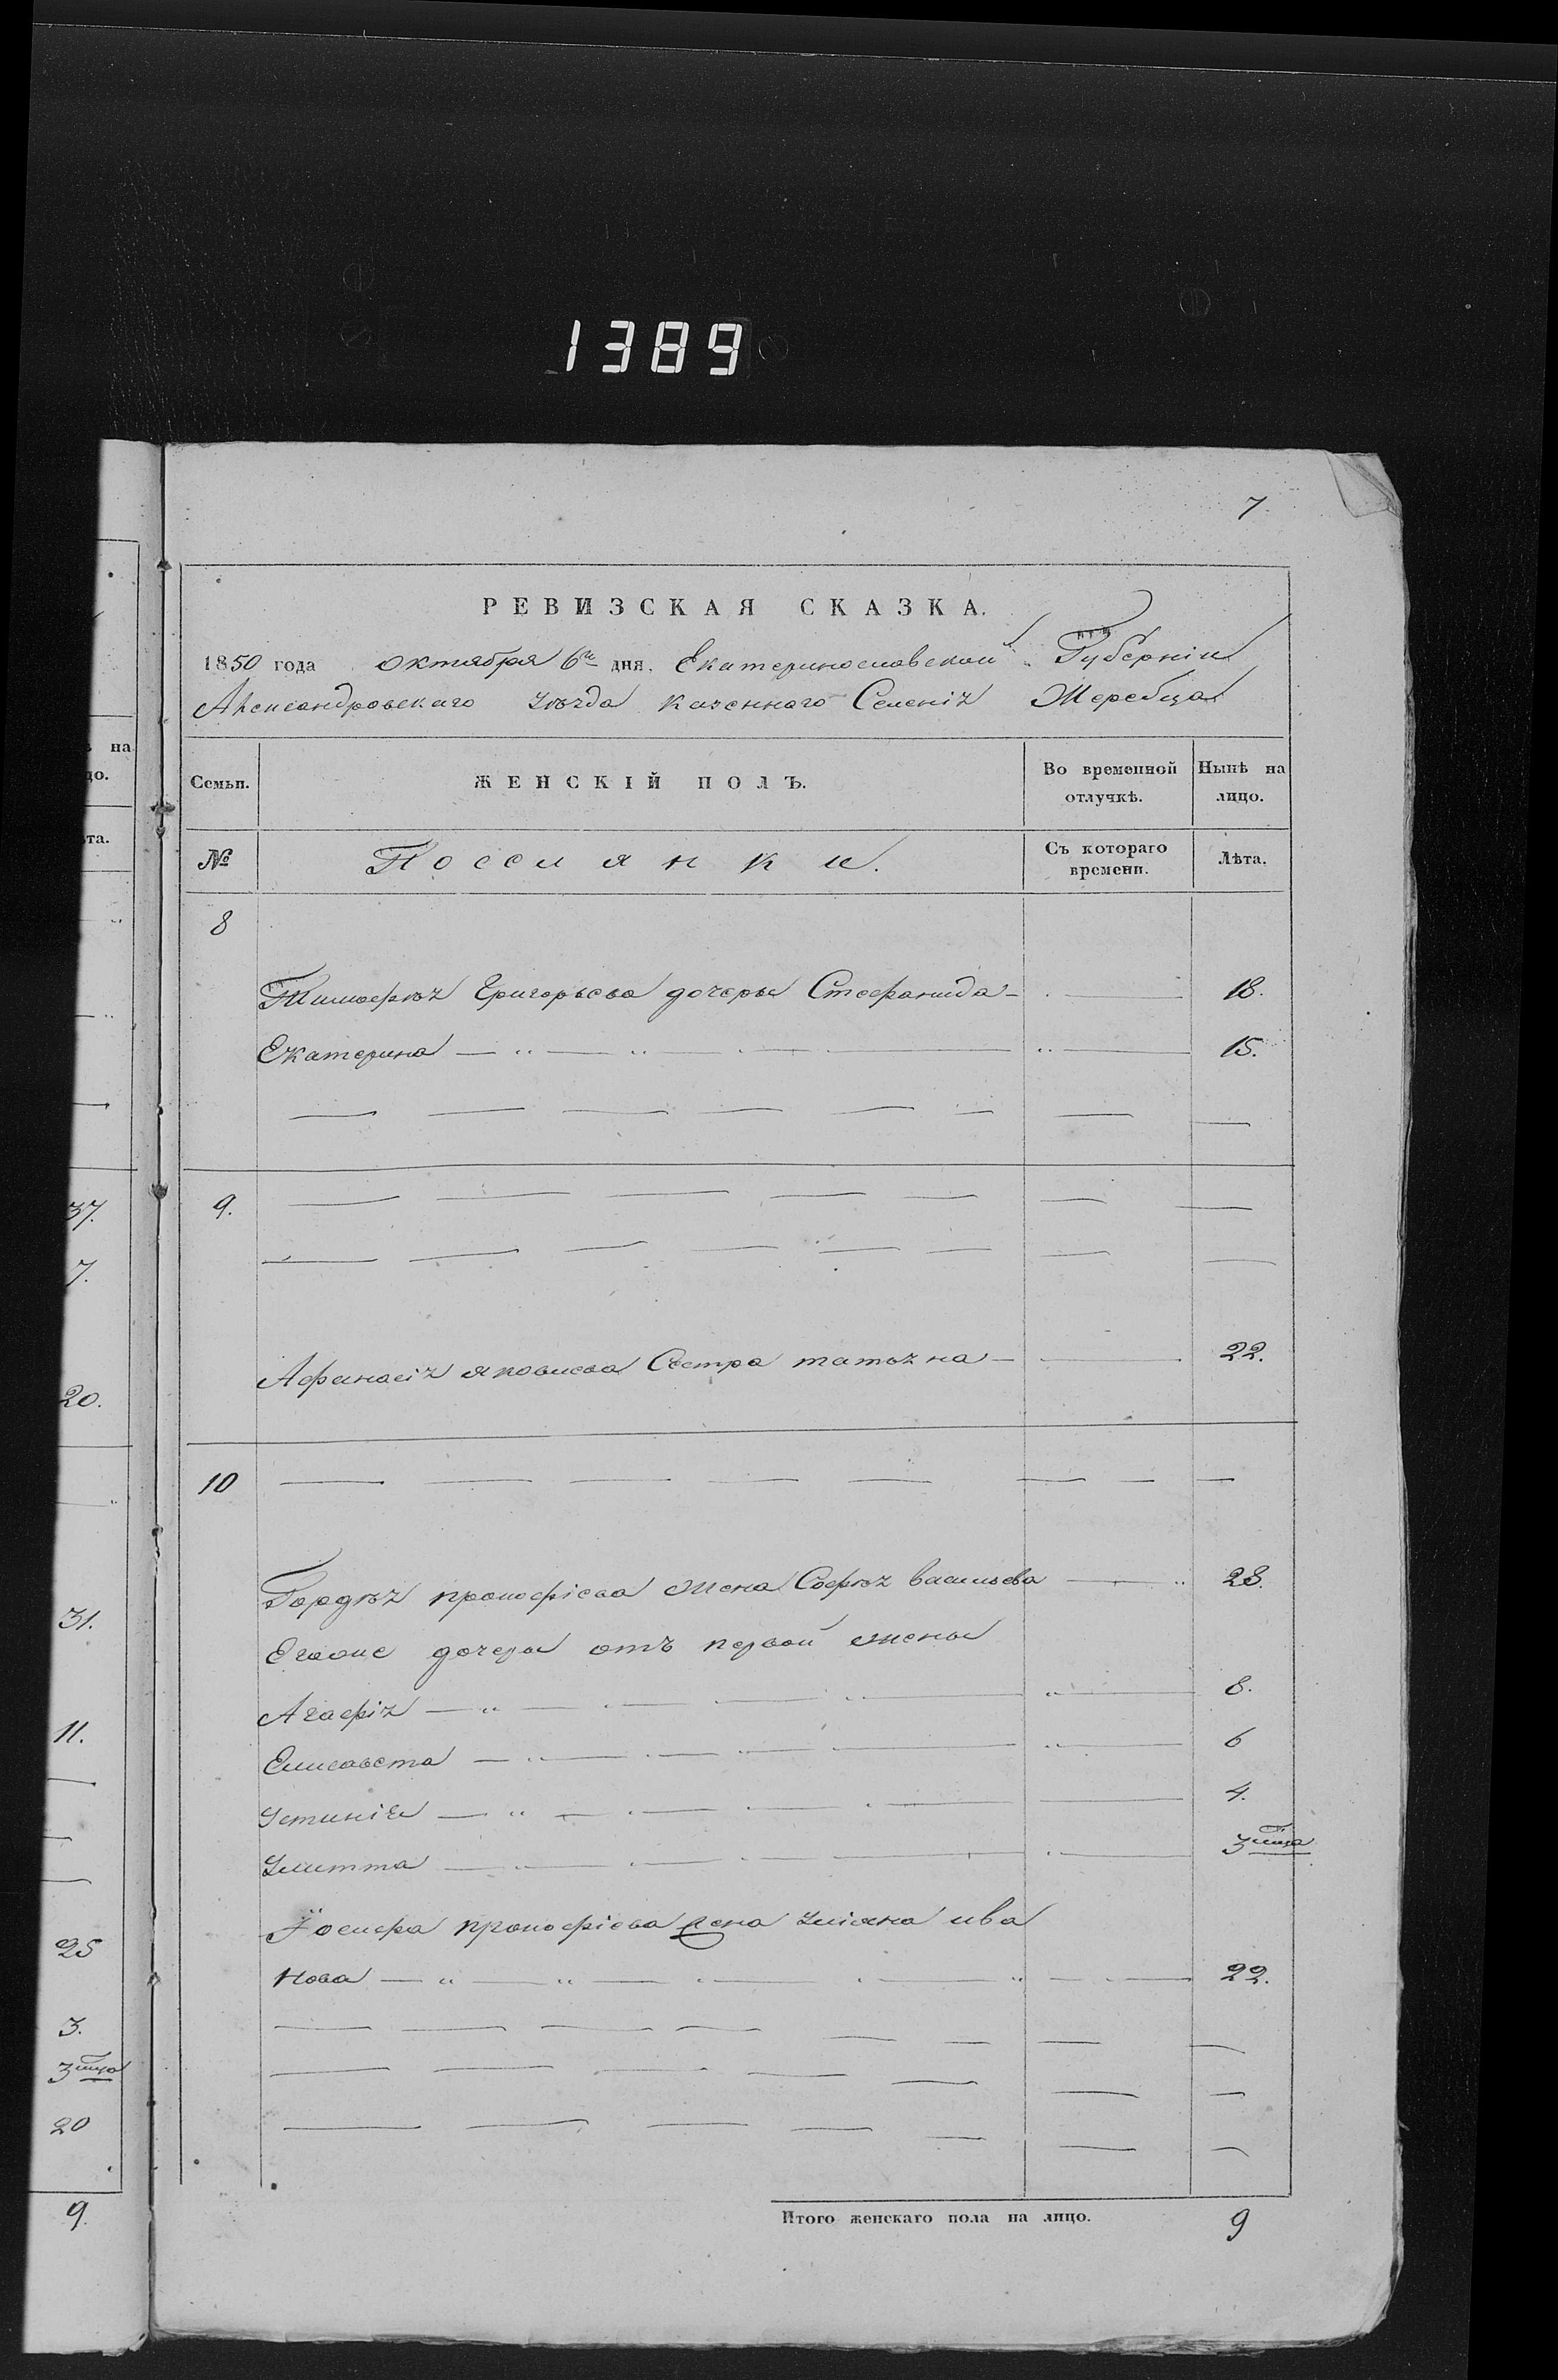 1389
7.
РЕВИЗСКАЯ СКАЗКА.
1850 года октября 6го дня. Екатеринославской Губернiи
Александровскаго уѣзда казеннаго Селенiя Жеребца
Семьи. ЖЕНСКIЙ ПОЛЪ. Во временной отлучкѣ. Нынѣ на лицо.
№ Поселянки. Съ котораго времени. Лѣта.
8
Тимофѣя Григорьева дочеры Стефанида 18.
Екатерина 15.
9.
Афанасiя яковлева Сестра татьяна 22.
10
Гордѣя прокофiева жена Софѣя васильева 28.
Егооне дочеры отъ первой жены
Агафiя 8.
Елисавета 6
Устинiя 4.
Улитта 3 мца
Iосифа прокофiева жена улiяна ива
нова 22.
Итого женскаго пола на лицо. 9
на
цо.
та.
37.
7.
20.
31.
11.
25
3.
3 мца
20
9.